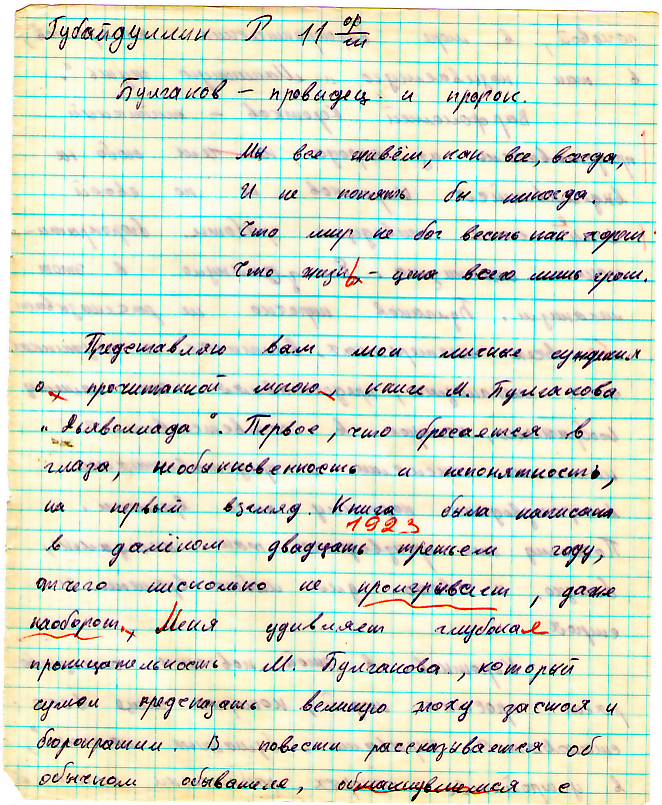 Губайдуллин Р 11 ор/т
Булгаков – провидец и пророк.
Мы все живём, как все, всегда,
И не понять бы никогда.
Что мир не бог весть как хорош
Что жизнь – цена всего лишь грош.
Представляю вам мои личные суждения
о прочитанной мною, книге М. Булгакова
"Дьяволиада". Первое, что бросается в
глаза, необыкновенность и непонятность,
на первый взгляд. Книга была написана
1923
в далёком двадцать третьем году,
отчего нисколько не проигрывает, даже
наоборот. Меня удивляет глубокая
проницательность М. Булгакова, который
сумел предсказать великую эпоху застоя и
бюрократии. В повести рассказывается об
обычном обывателе, с